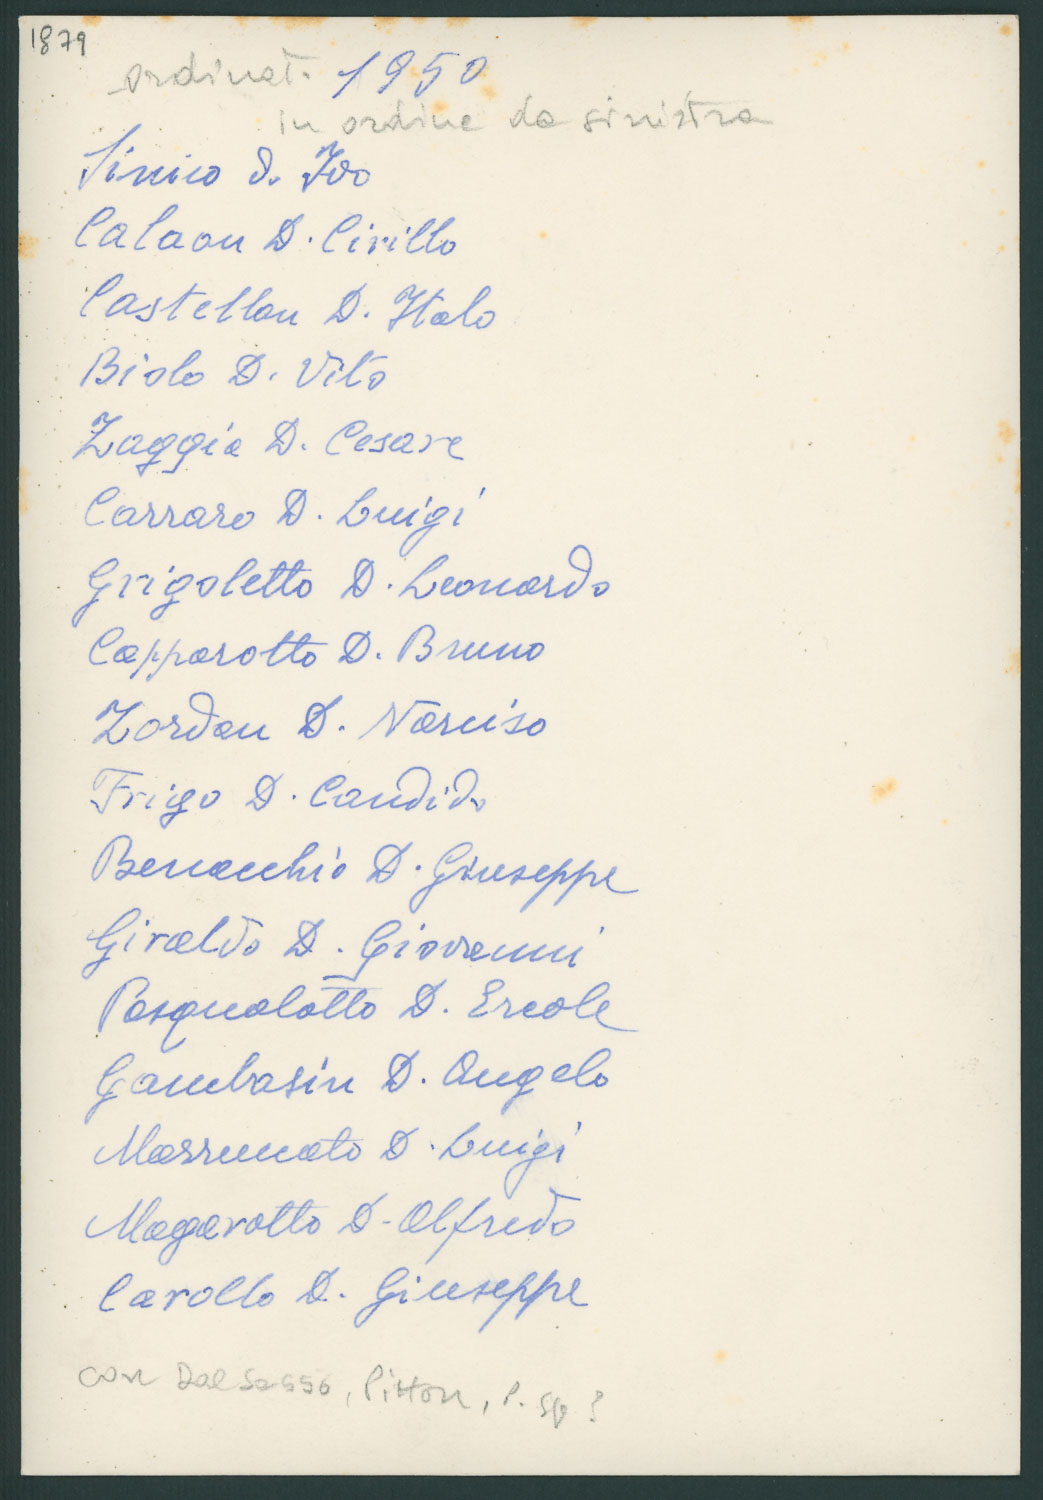 1879
ordinat. 1950
in ordine da sinistra
Sinico d. Ivo
Calaon D. Cirillo
Castellan D. Italo
Biolo D. Vito
Zaggia D. Cesare
Carraro D. Luigi
Grigoletto D. Leonardo
Capparotto D. Bruno
Zordan D. Narciso
Frigo D. Candido
Benacchio D. Giuseppe
Giraldo D. Giovanni
Pasqualotto D. Ercole
Gambasin D. Angelo
Marrunato D. Luigi
Magarotto D. Alfredo
Carollo D. Giuseppe
con Dal Sasso, Pitton, P. sp ?